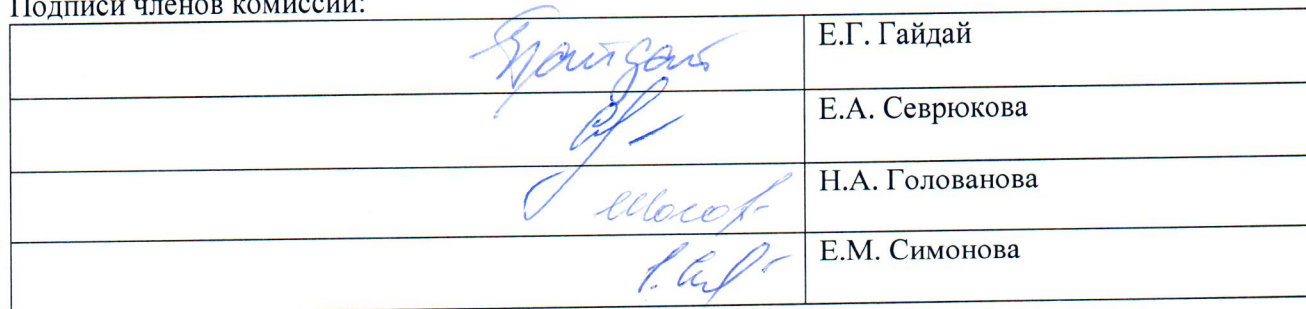 Подписи членов комиссии:
Е.Г. Гайдай
Е.А. Севрюкова
Н.А. Голованова
Е.М. Симонова